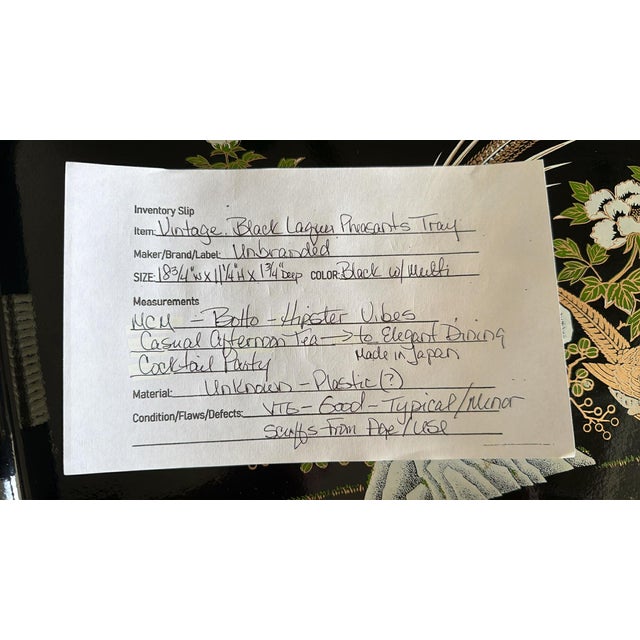 Inventory Slip
Item: Vintage. Black Laquer Pheasants Tray
Maker/Brand/Label: Unbranded
SIZE: 18 3/4" W X 11 1/4" H X 1 3/4" Deep COLOR: Black w/ Multi
Measurements
MCM - BoHo - Hipster Vibes
Casual Afternoon Tea → to Elegant Dining
Cocktail Party Made in Japan
Material: Unknown - Plastic (?)
Condition/Flaws/Defects: VTG - Good - Typical/Minor
Scuffs From Age/Use